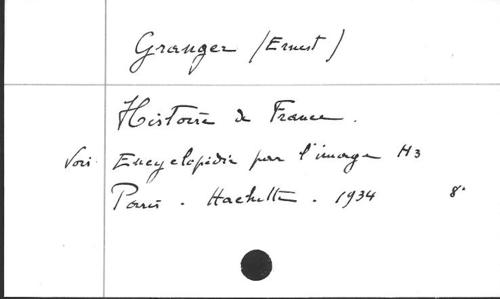 Granger (Ernest)
Histoire de France.
Voir Encyclopédie par l'image H3
Paris. Hachette. 1934 8°